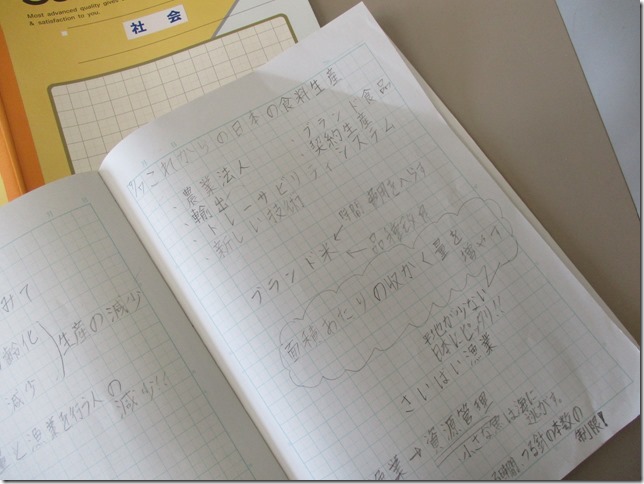 Most advanced quality gives
& satisfaction to you.
社会
みて
齢化
減少
生産の減少
量と漁業を行う人の
減少
これからの日本の食料生産
・農業法人
・ブランド食品
・輸出
・契約生産
・トレーサビリティシステム
・新しい技術
ブランド米
時間 費用をへらす
品種改良
面積あたりの収かく量を
増やす
平地が少ない
日本にピッタリ!!
さいばい漁業
漁業→資源管理
小さな魚は海に
逃がす。
つり針の本数の
制限!